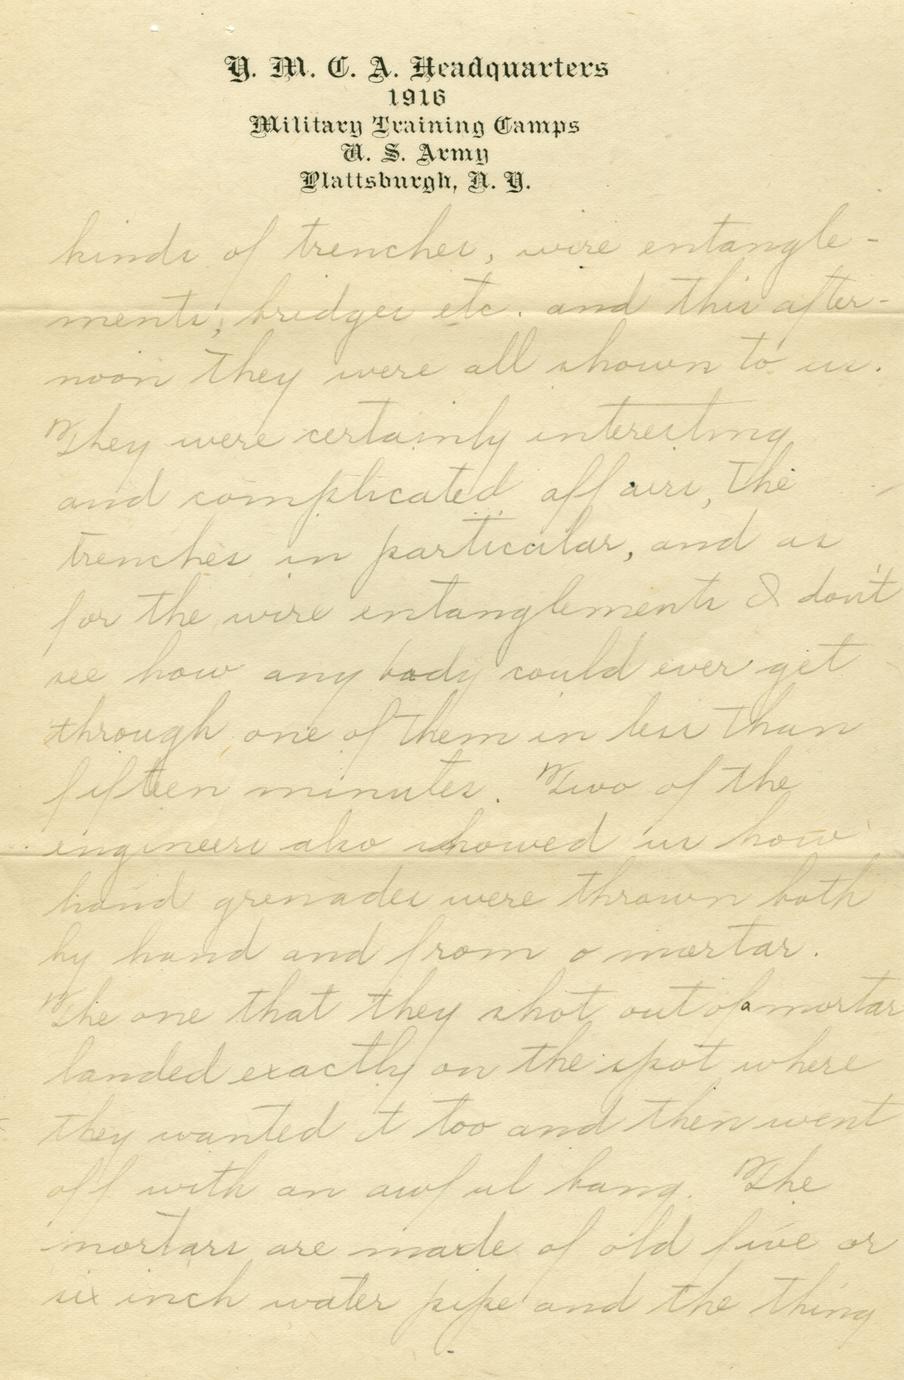 Y. M. C. A. Headquarters
1916
Military Training Camps
U. S. Army
Plattsburgh, N. Y.
kinds of trenches, wire entangle-
ments, bridges etc. and this after-
noon they were all shown to us.
They were certainly interesting
and complicated affairs, the
trenches in particular, and as
for the wire entanglements I don't
see how any body could ever get
through one of them in less than
fifteen minutes. Two of the
engineers also showed us how
hand grenades were thrown both
by hand and from a mortar.
The one that they shot out of a mortar
landed exactly on the spot where
they wanted it too and then went
off with an awful bang. The
mortars are made of old five or
six inch water pipe and the thing